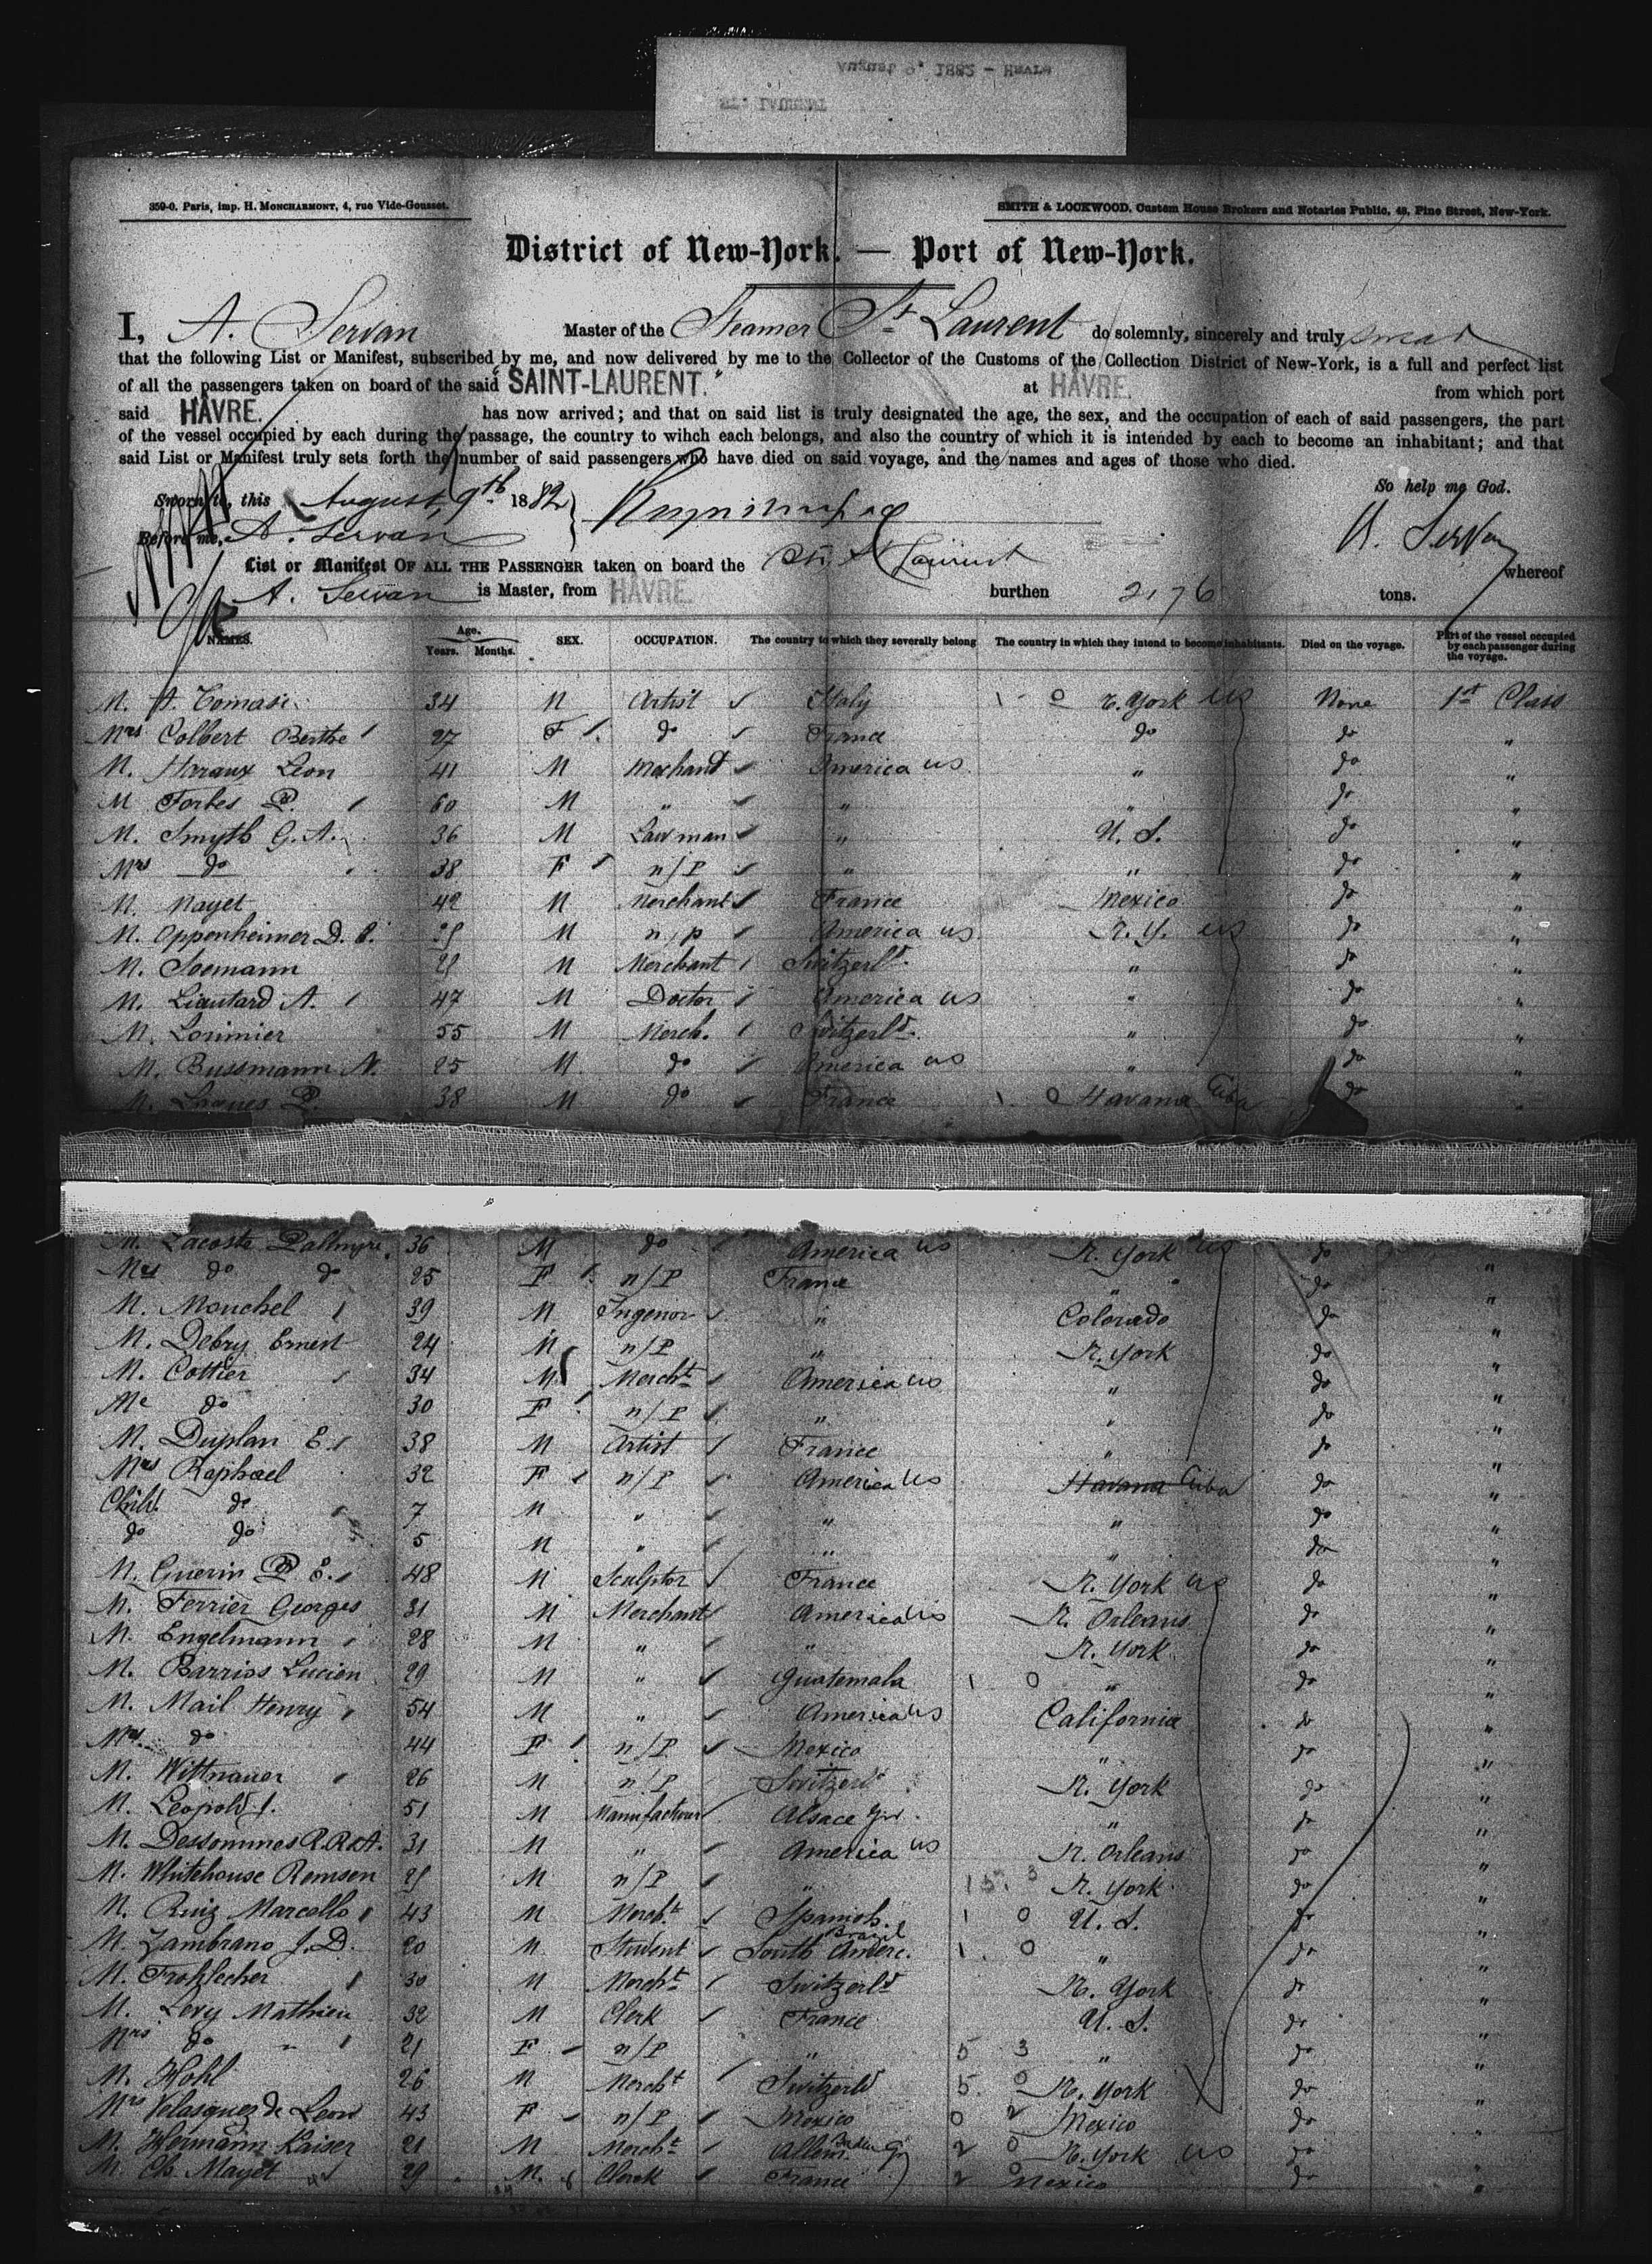 August 9, 1882 - Havre
ST. LAURENT
359-0. Paris, imp. H. MONCHARMONT, 4, rue Vide-Gousset.
SMITH & LOCKWOOD, Custom House Brokers and Notaries Public, 48, Pine Street, New-York.
District of New-York. — Port of New-York.
I, A. Servan Master of the Steamer St Laurent do solemnly, sincerely and truly swear
that the following List or Manifest, subscribed by me, and now delivered by me to the Collector of the Customs of the Collection District of New-York, is a full and perfect list
of all the passengers taken on board of the said "SAINT-LAURENT." at HAVRE. from which port
said HAVRE. has now arrived; and that on said list is truly designated the age, the sex, and the occupation of each of said passengers, the part
of the vessel occupied by each during the passage, the country to wihch each belongs, and also the country of which it is intended by each to become an inhabitant; and that
said List or Manifest truly sets forth the number of said passengers who have died on said voyage, and the names and ages of those who died.
So help me God.
Sworn to, this August, 9th 1882
Before me, A. Servan
A. Servan
List or Manifest OF ALL THE PASSENGER taken on board the St. Laurent whereof
A. Servan is Master, from HAVRE. burthen 2176 tons.
NAMES. Age. Years. Months. SEX. OCCUPATION. The country to which they severally belong The country in which they intend to become inhabitants. Died on the voyage. Part of the vessel occupied by each passenger during the voyage.
M. A. Tomasi 34 M Artist Italy 1 0 N. York US None 1st Class
Mrs Colbert Berthe 27 F do France do do "
M. Haraux Leon 41 M Merchand America us " do "
M Forbes P. 60 M " " " do "
M. Smyth G. A. 36 M Lawman " U. S. do "
Mrs do 38 F n/P " " do "
M. Mayet 42 M Merchant France Mexico do "
M. Oppenheimer D. E. M n/p America us N. Y. us do "
M. Seemann M Merchant Switzerld. " do "
M. Liautard A. 47 M Doctor America us " do "
M. Lorimier 55 M Merch. Switzerld. " do "
M. Bussmann N. 25 M. do America us " do "
M. P. 38 M do France 1 0 Havana Cuba do "
M. Lacoste Palmyre 36 M do America us N. York us do "
Mrs do do 25 F n/P France " do "
M. Mouchel 39 M Ingenior " Colorado do "
M. Debry Ernest 24 M n/P " N. York do "
M. Cottier 34 M Mercht America us " do "
Me do 30 F n/P " " do "
M. Duplan E. 38 M Artist France " do "
Mrs Raphael 32 F n/P America us Havana Cuba do "
Child. do 7 M " " " do "
do do 5 M " " " do "
M. Guerin P. E. 48 M Sculptor France N. York us do "
M. Ferrier Georges 31 M Merchant America us N. Orleans do "
M. Engelmann 28 M " " N. York do "
M. Barrios Lucien 29 M " Guatemala 1 0 " do "
M. Mail Henry 54 M " America us California do "
Mrs. do 44 F n/P Mexico " do "
M. Wittnauer 26 M n/P Switzerld N. York do "
M. Leopold J. 51 M Manufacturer Alsace Ger. " do "
M. Dessommes R. R & A. 31 M " America us N. Orleans do "
M. Whitehouse Remsen M n/P " N. York do "
M. Ruiz Marcello 43 M Mercht Spanish. 1 0 U. S. do "
M. Zambrano J. D. 20 M Student South Americ. Brazil 1 0 " do "
M. Frohlecher 30 M Mercht Switzerld N. York do "
M. Levy Mathieu 32 M Clerk France U. S. do "
Mrs do 21 F n/P " 5 3 " do "
M. Hohl 26 M Mercht Switzerld 5 0 N. York do "
Mrs Velasquez de Leon 43 F n/P Mexico 0 2 Mexico do "
M. Hermann Kaiser 21 M Mercht Allem. Baden Ger 2 0 N. York us do "
M. Ch. Mayet 29 M. Clerck France 2 0 Mexico do "